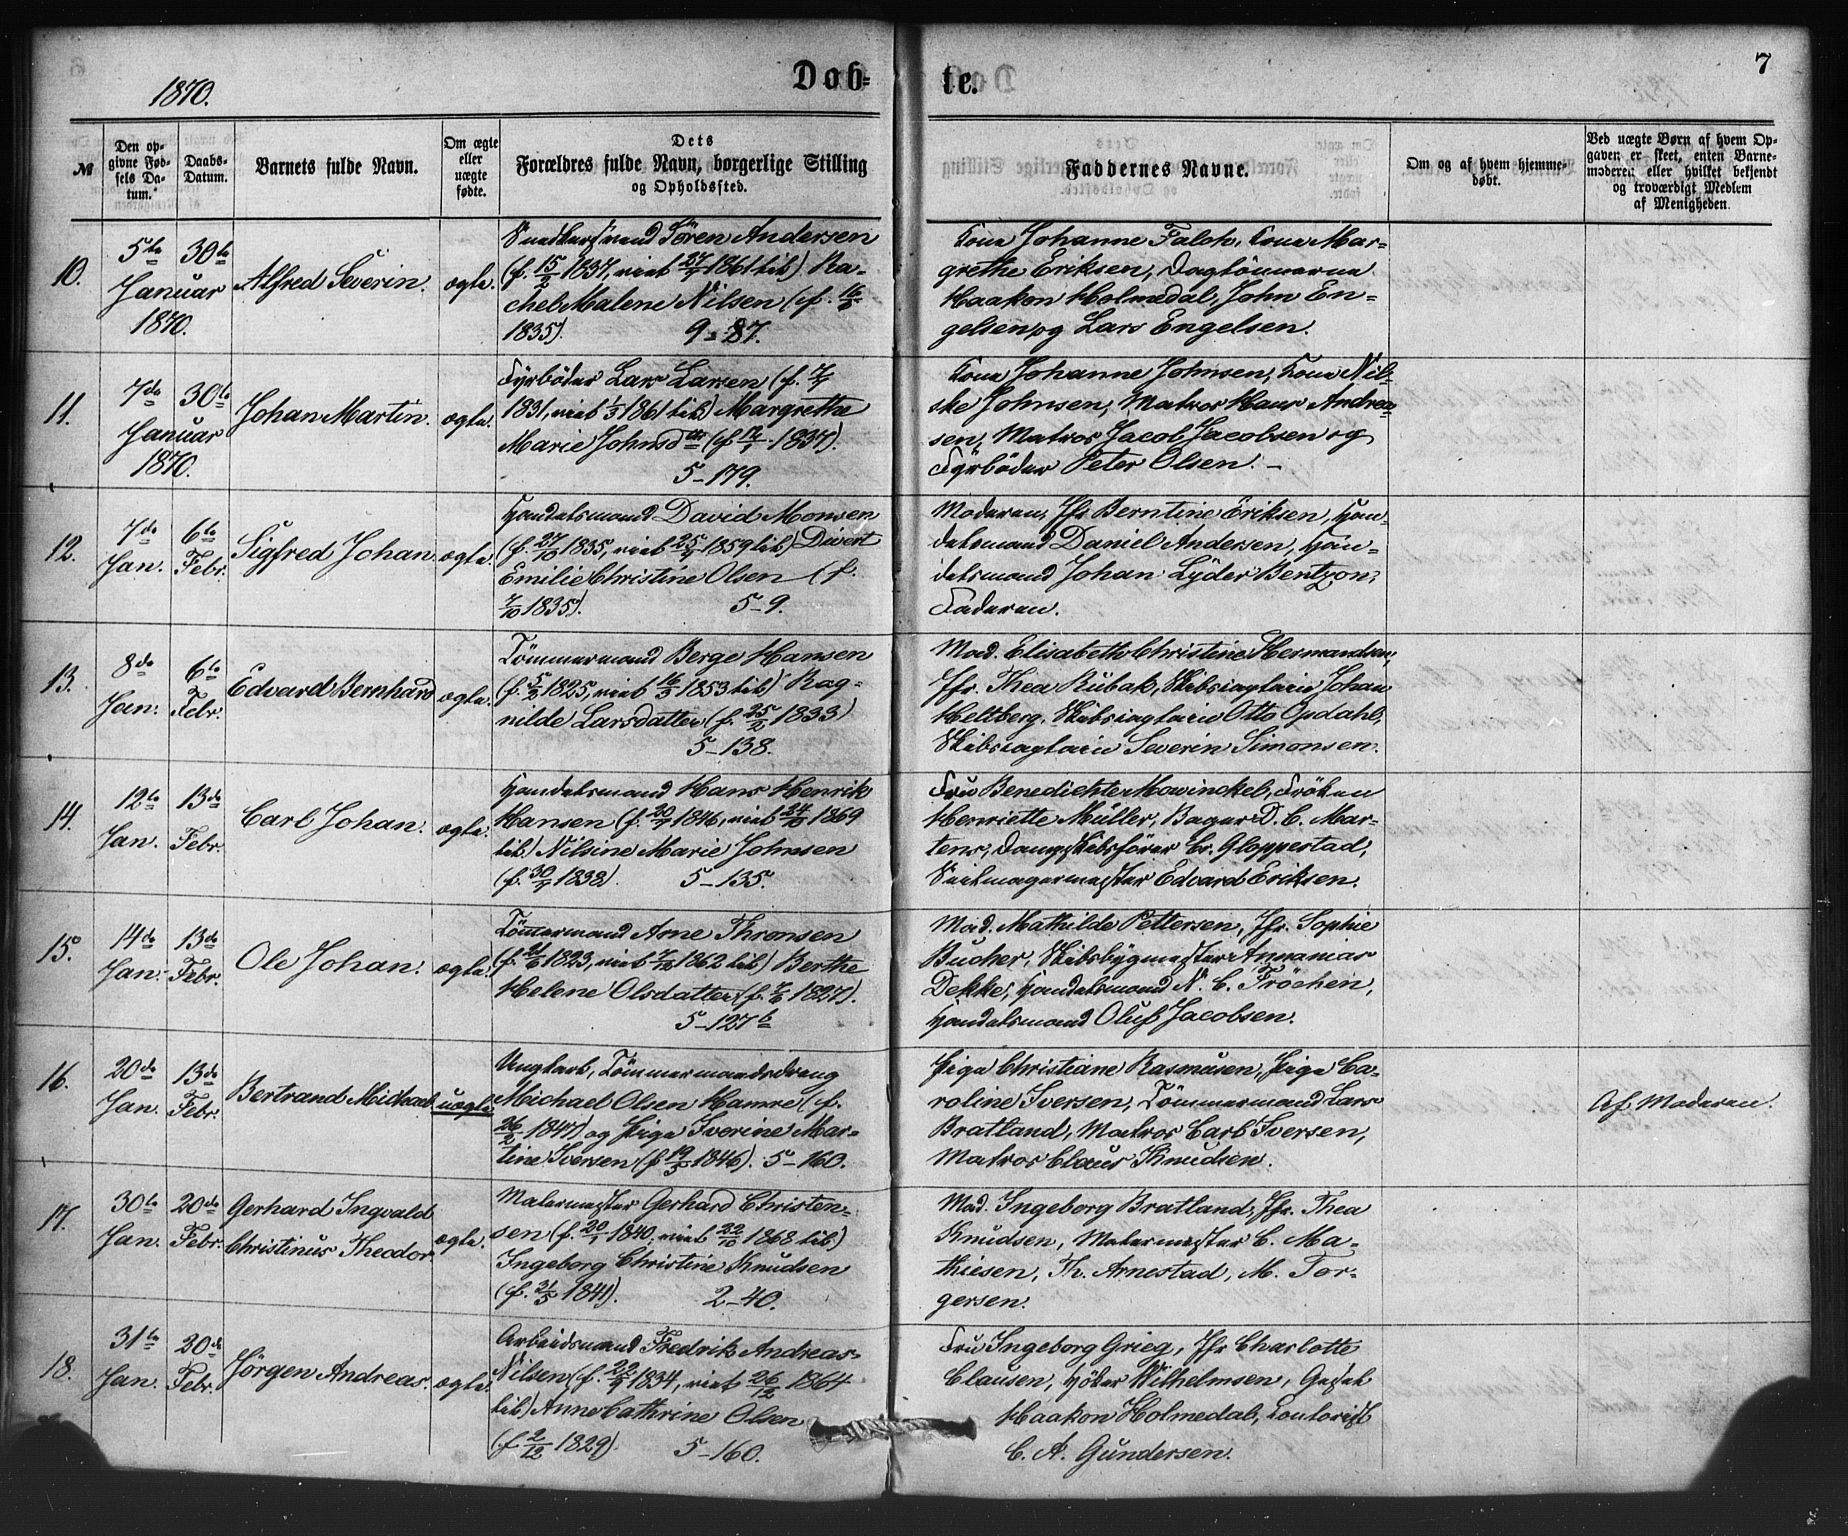 1870.
Døb-
te.
7
№
Den op-
givne Fød-
sels Da-
tum.
Daabs-
Datum.
Barnets fulde Navn.
Om ægte
eller
uægte
fødte.
Dets
Forældres fulde Navn, borgerlige Stilling
og Opholdssted.
Faddernes Navne.
Om og af hvem hjemme-
døbt.
Ved uægte Børn af hvem Op-
gaven er skeet, enten Barne-
moderen eller hvilket bekjendt
og troværdigt Medlem
af Menigheden.
10.
5te
Januar
1870.
30te
Alfred Severin.
ægte.
Søren Andersen
(f. 15/2 1837, viet 27/ 1861 til) Ra-
chel Malene Nilsen (f. 16/
1835). 9-87.
Kone Johanne Falch, Kone Mar-
grethe Eriksen, Daglønnerne
Haakon Holmedal, John En-
gelsen og Lars Engelsen.
11.
7de
Januar
1870.
30te
Johan Martin.
ægte.
Fyrbøder Lars Larsen (f.
1831, viet 1/5 1861 til) Margrethe
Marie Johnsdtr (f. 1837).
5-179.
Kone Johanne Johnsen, Kone Nil-
ske Johnsen, Matros Hans Andrea-
sen, Matros Jacob Jacobsen og
Fyrbøder Peter Olsen.
12.
7de
Jan.
6te
Febr.
Sigfred Johan.
ægte.
Handelsmand David Monsen
(f. 27/10 1835, viet 25/ 1859 til) Divert
Emilie Christine Olsen (f.
7/10 1835). 5-9.
Moderen, Jfr Berntine Eriksen, Han-
delsmand Daniel Andersen, Han-
delsmand Johan Lyder Bentzon,
Faderen.
13.
8de
Jan.
6te
Febr.
Edvard Bernhard
ægte.
Tömmermand Berge Hansen
(f. 5/2 1825, viet 16/5 1853 til) Rag-
nilde Larsdatter (f. 25/2 1833)
5-138.
Mad. Elisabeth Christine Hermandsen,
Jfr. Thea Rubak, Skibsiagtarie Johan
Heltberg, Skibsiagtarie Otto Opdahl,
Skibsiagtarie Severin Simonsen.
14.
12te
Jan.
13de
Febr.
Carl Johan.
ægte.
Handelsmand Hans Henrik
Hansen (f. 20/ 1846, viet 24/10 1869
til) Nilsine Marie Johnsen
(f. 30/ 1838). 5-135.
Fru Benedichte Mowinckel, Fröken
Henriette Müller, Bager D. C. Mar-
tens, Dampskibsförer Cr. Gloppestad,
Seilmagermester Edvard Eriksen.
15.
14de
Jan.
13de
Febr.
Ole Johan.
ægte.
Tömmermand Arne Thronsen
(f. 1823, viet 1862 til) Berthe
Helene Olsdatter (f. 1827).
5-127b
Mad. Mathilde Pettersen, Jfr. Sophie
Bucher, Skibsbygmester Annanias
Dekke, Handelsmand N. C. Fröchen,
Handelsmand Oluf Jacobsen.
16.
20de
Jan.
13de
Febr.
Bertrand Michael
uægte
Ungkarl, Tömmermandsdreng
Michael Olsen Hamre (f.
26/2 1847) og Pige Sverine Mar-
tine Iversen (f. 19/5 1846). 5-160.
Pige Christiane Rasmusen, Pige Ca-
roline Iversen, Tömmermand Lars
Bratland, Matros Carl Iversen,
Matros Claus Knudsen.
Af Moderen.
17.
30te
Jan.
20de
Febr.
Gerhard Ingvald
Christinus Theodor.
ægte.
Malermester Gerhard Christen-
sen (f. 20/1 1840, viet 22/10 1868 til)
Ingeborg Christine Knudsen
(f. 31/5 1841). 2-40.
Mad. Ingeborg Bratland, Jfr. Thea
Knudsen, Malermester C. Ma-
thiesen, Th. Arnestad, M. Tor-
gersen.
18.
31te
Jan.
20de
Febr.
Jörgen Andreas.
ægte.
Arbeidsmand Fredrik Andreas
Nilsen (f. 22/9 1834, viet 26/12 1864
til) Anne Cathrine Olsen
(f. 2/12 1829). 5-160.
Fru Ingeborg Grieg, Jfr Charlotte
Clausen, Höker Wilhelmsen,
Haakon Holmedal, Contorist
C. A. Gundersen.